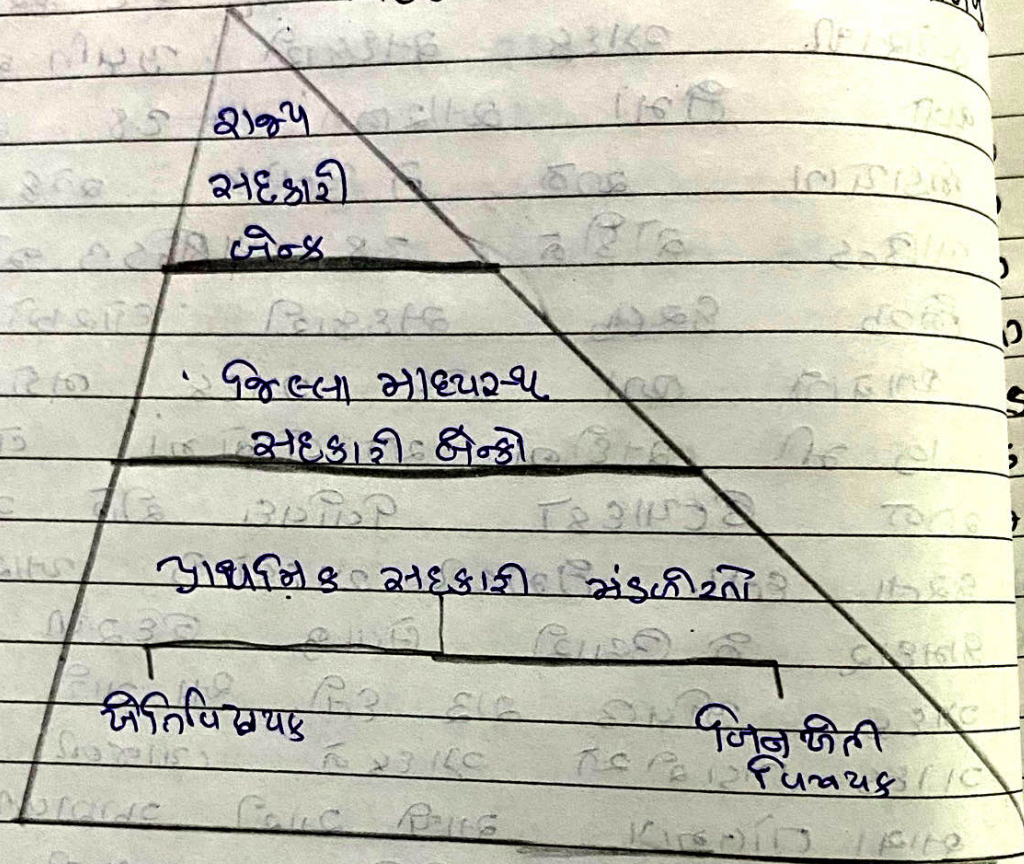 રાજ્ય
સહકારી
બેન્ક
જિલ્લા માધ્યસ્થ
સહકારી બેન્કો
પ્રાથમિક સહકારી મંડળીઓ
ખેતિવિષયક
બિન ખેતી
વિષયક